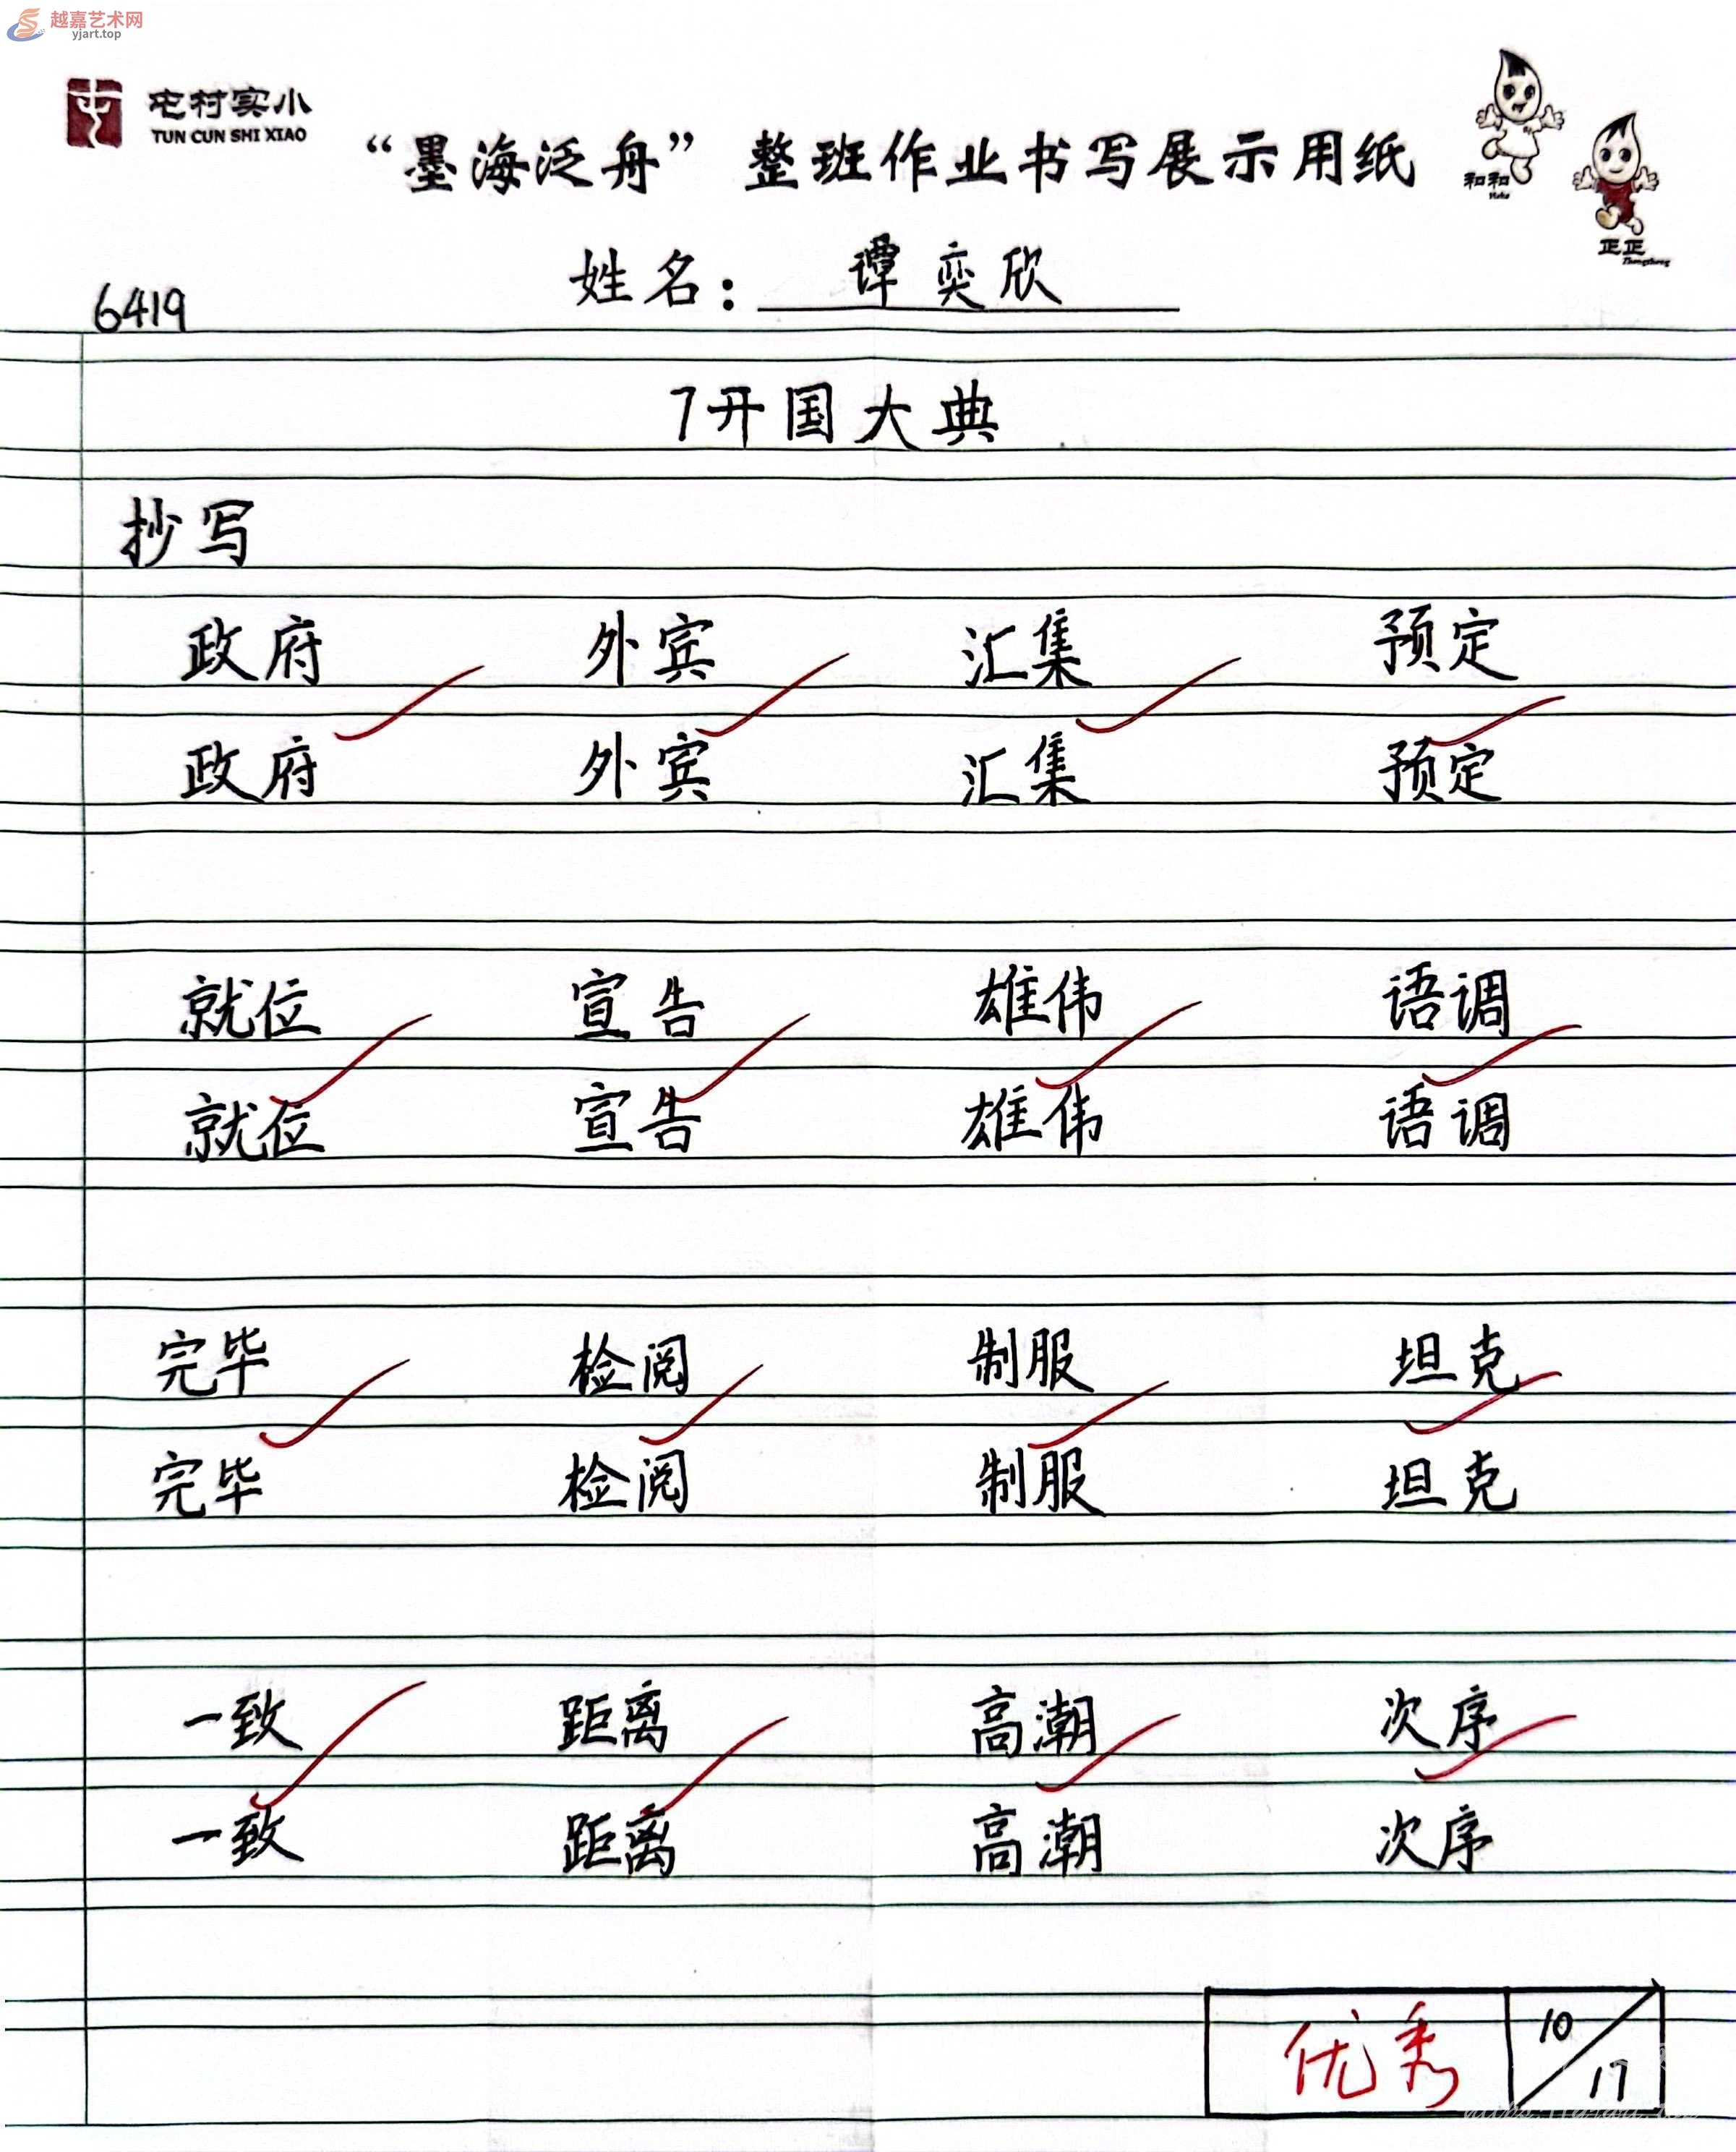 越嘉艺术网
yjart.top
屯村实小
TUN CUN SHI XIAO
“墨海泛舟”整班作业书写展示用纸
和和
Hehe
正正
Zhengzheng
姓名：谭奕欣
6419
7开国大典
抄写
政府 外宾 汇集 预定
政府 外宾 汇集 预定
就位 宣告 雄伟 语调
就位 宣告 雄伟 语调
完毕 检阅 制服 坦克
完毕 检阅 制服 坦克
一致 距离 高潮 次序
一致 距离 高潮 次序
优秀 10/17